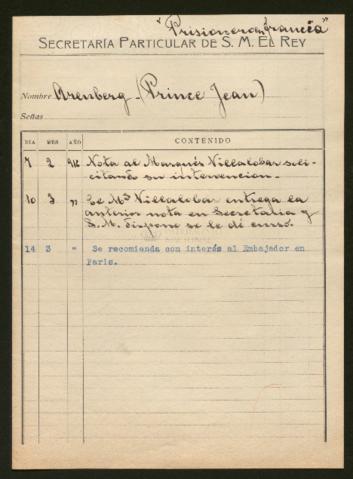 "Prisionero en Francia"
SECRETARÍA PARTICULAR DE S. M. EL REY
Nombre Arenberg - (Prince Jean)
Señas
DIA MES AÑO CONTENIDO
7 2 916 Nota al Marqués Villalobar soli-
citando su intervencion.-
10 3 " El Mqs Villalobar entrega la
anterior nota en Secretaria y
S.M. dispone se le dé curso.
14 3 " Se recomienda con interés al Embajador en
Paris.